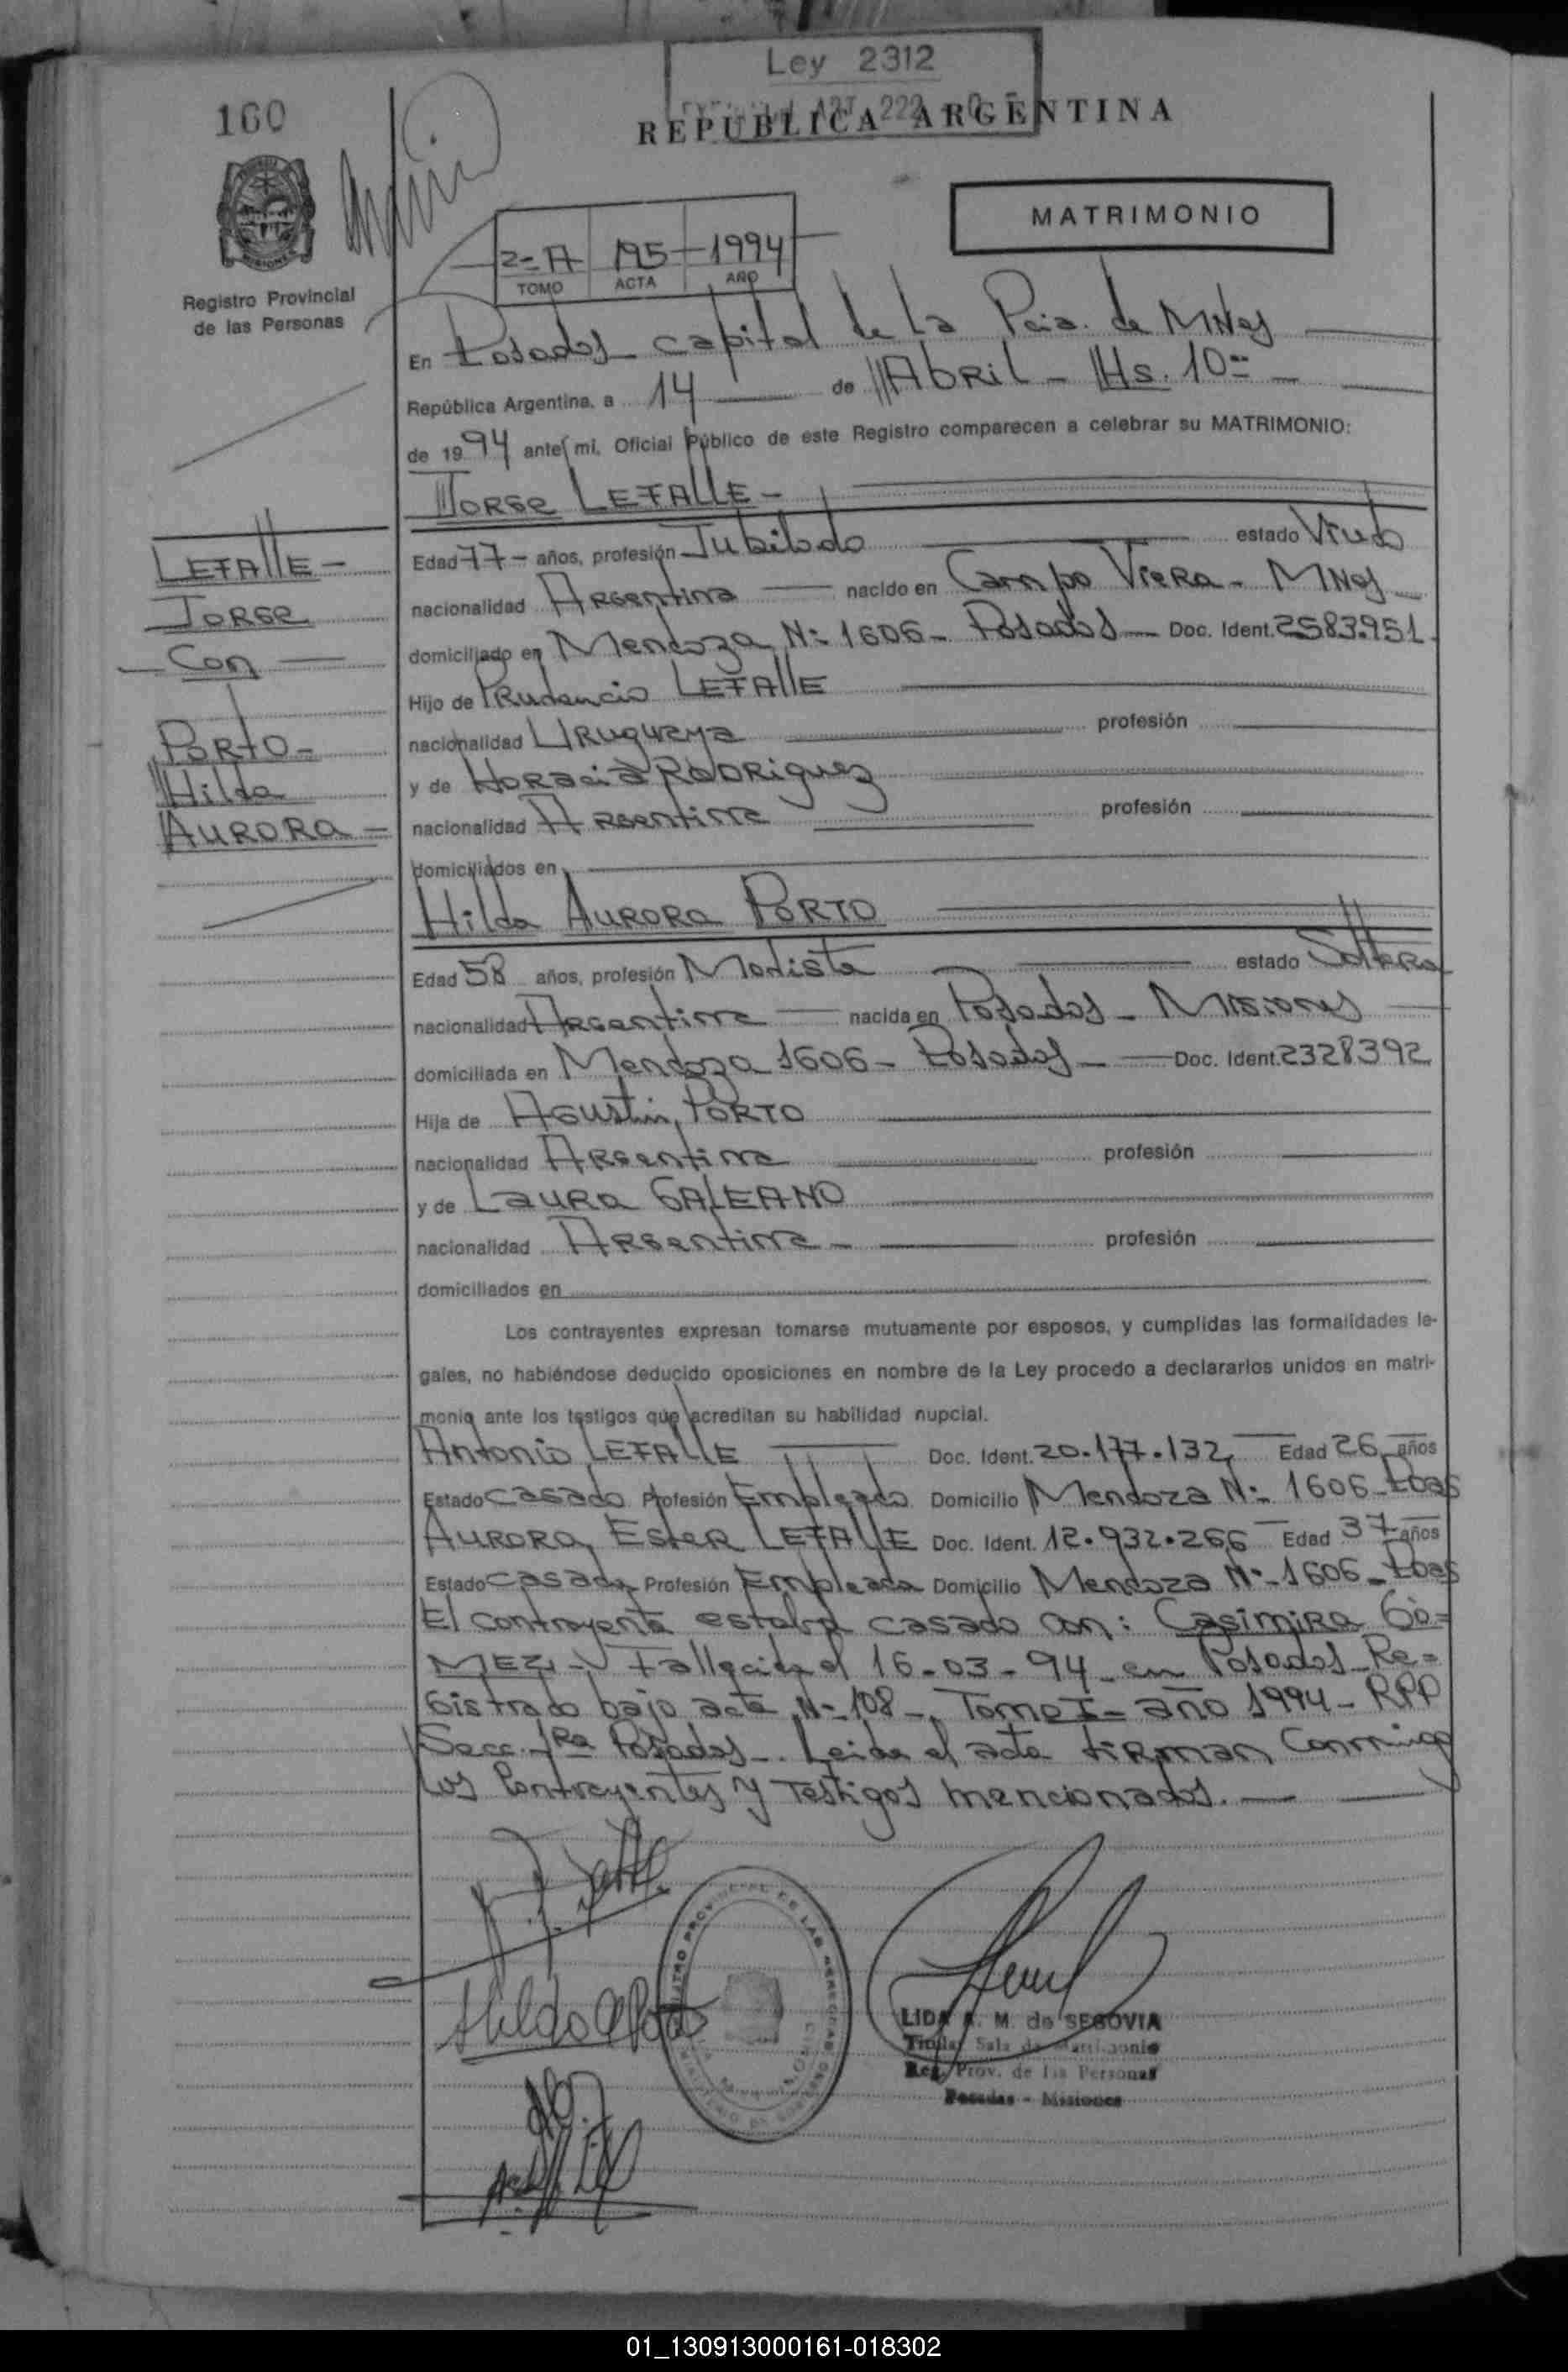 Ley 2312
160
REPUBLICA ARGENTINA
MATRIMONIO
2-A 195 1994
TOMO ACTA AÑO
Registro Provincial
de las Personas
En Posadas capital de la Pcia. de MNes
República Argentina, a 14 de Abril - Hs. 10
de 1994 ante mi, Oficial Público de este Registro comparecen a celebrar su MATRIMONIO:
Jorge LEFALLE -
LEFALLE -
Jorge
Con
PORTO -
Hilda
AURORA -
Edad 77 - años, profesión Jubilado estado Viudo
nacionalidad Argentina nacido en Campo Viera - MNes
domiciliado en Mendoza Nº 1606 - Posadas - Doc. Ident. 2583.951
Hijo de Prudencio LEFALLE
nacionalidad Uruguaya profesión
y de Horacia Rodriguez
nacionalidad Argentina profesión
domiciliados en
Hilda AURORA PORTO
Edad 58 años, profesión Modista estado Soltera
nacionalidad Argentina nacida en Posadas - Misiones
domiciliada en Mendoza 1606 - Posadas - Doc. Ident. 2328392
Hija de Agustin PORTO
nacionalidad Argentina profesión
y de Laura GALEANO
nacionalidad Argentina - profesión
domiciliados en
Los contrayentes expresan tomarse mutuamente por esposos, y cumplidas las formalidades le-
gales, no habiéndose deducido oposiciones en nombre de la Ley procedo a declararlos unidos en matri-
monio ante los testigos que acreditan su habilidad nupcial.
Antonio LEFALLE Doc. Ident. 20.177.132 Edad 26 años
Estado casado Profesión Empleado Domicilio Mendoza Nº 1606 - Pdas
AURORA Ester LEFALLE Doc. Ident. 12.932.266 Edad 37 años
Estado casada Profesión Empleada Domicilio Mendoza Nº 1606 - Pdas
El contrayente estaba casado con: Casimira Gó=
MEZ - Fallecida el 16-03-94 en Posados - Re=
gistrado bajo acta Nº 108 - Tomo I - año 1994 - RPP
Secc. 1ra Posadas -. Leida el acta firman Conmigo
los Contrayentes y Testigos mencionados.
LIDA A. M. de SEGOVIA
Titular Sala de Matrimonio
Reg. Prov. de las Personas
Posadas - Misiones
01_130913000161-018302